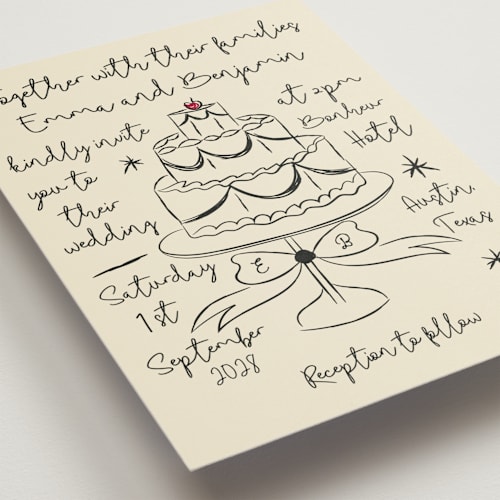 together with their families
Emma and Benjamin
kindly invite
you to
their
wedding
at 2pm
Bonheur
Hotel
Austin,
Texas
Saturday
1st
September
2028
E B
Reception to follow